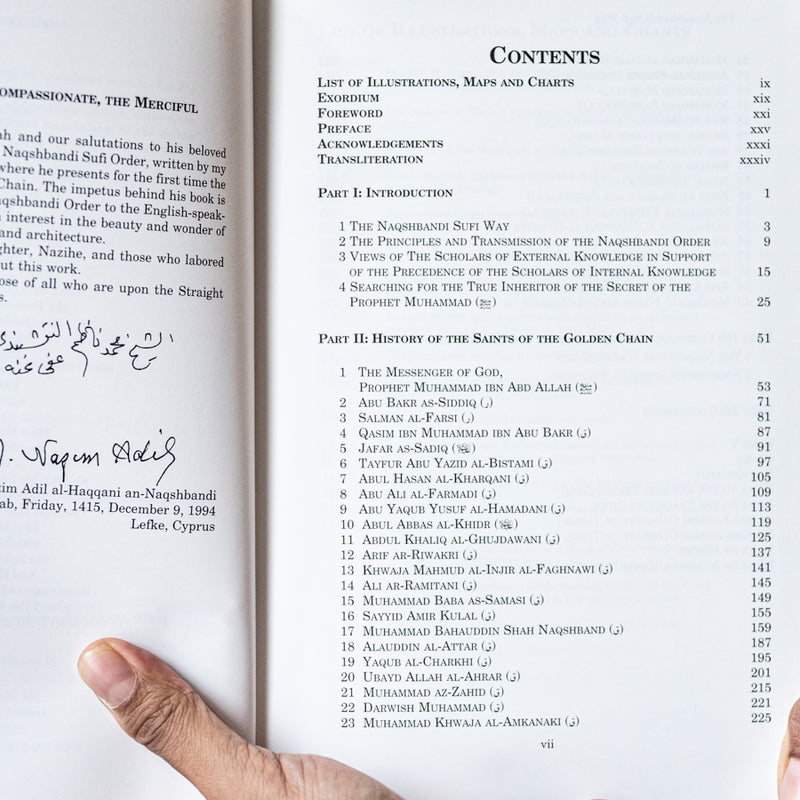 OMPASSIONATE, THE MERCIFUL
ah and our salutations to his beloved
Naqshbandi Sufi Order, written by my
where he presents for the first time the
Chain. The impetus behind his book is
qshbandi Order to the English-speak-
interest in the beauty and wonder of
and architecture.
ghter, Nazihe, and those who labored
ut this work.
ose of all who are upon the Straight
s.
الشيخ محمد ناظم النقشبندي
عفي عنه
Nazim Adil
zim Adil al-Haqqani an-Naqshbandi
ab, Friday, 1415, December 9, 1994
Lefke, Cyprus
CONTENTS
LIST OF ILLUSTRATIONS, MAPS AND CHARTS ix
EXORDIUM xix
FOREWORD xxi
PREFACE xxv
ACKNOWLEDGEMENTS xxxi
TRANSLITERATION xxxiv
PART I: INTRODUCTION 1
1 THE NAQSHBANDI SUFI WAY 3
2 THE PRINCIPLES AND TRANSMISSION OF THE NAQSHBANDI ORDER 9
3 VIEWS OF THE SCHOLARS OF EXTERNAL KNOWLEDGE IN SUPPORT
OF THE PRECEDENCE OF THE SCHOLARS OF INTERNAL KNOWLEDGE 15
4 SEARCHING FOR THE TRUE INHERITOR OF THE SECRET OF THE
PROPHET MUHAMMAD (ﷺ) 25
PART II: HISTORY OF THE SAINTS OF THE GOLDEN CHAIN 51
1 THE MESSENGER OF GOD,
PROPHET MUHAMMAD IBN ABD ALLAH (ﷺ) 53
2 ABU BAKR AS-SIDDIQ (ر) 71
3 SALMAN AL-FARSI (ر) 81
4 QASIM IBN MUHAMMAD IBN ABU BAKR (ق) 87
5 JAFAR AS-SADIQ 91
6 TAYFUR ABU YAZID AL-BISTAMI (ق) 97
7 ABUL HASAN AL-KHARQANI (ق) 105
8 ABU ALI AL-FARMADI (ق) 109
9 ABU YAQUB YUSUF AL-HAMADANI (ق) 113
10 ABUL ABBAS AL-KHIDR 119
11 ABDUL KHALIQ AL-GHUJDAWANI (ق) 125
12 ARIF AR-RIWAKRI (ق) 137
13 KHWAJA MAHMUD AL-INJIR AL-FAGHNAWI (ق) 141
14 ALI AR-RAMITANI (ق) 145
15 MUHAMMAD BABA AS-SAMASI (ق) 149
16 SAYYID AMIR KULAL (ق) 155
17 MUHAMMAD BAHAUDDIN SHAH NAQSHBAND (ق) 159
18 ALAUDDIN AL-ATTAR (ق) 187
19 YAQUB AL-CHARKHI (ق) 195
20 UBAYD ALLAH AL-AHRAR (ق) 201
21 MUHAMMAD AZ-ZAHID (ق) 215
22 DARWISH MUHAMMAD (ق) 221
23 MUHAMMAD KHWAJA AL-AMKANAKI (ق) 225
vii